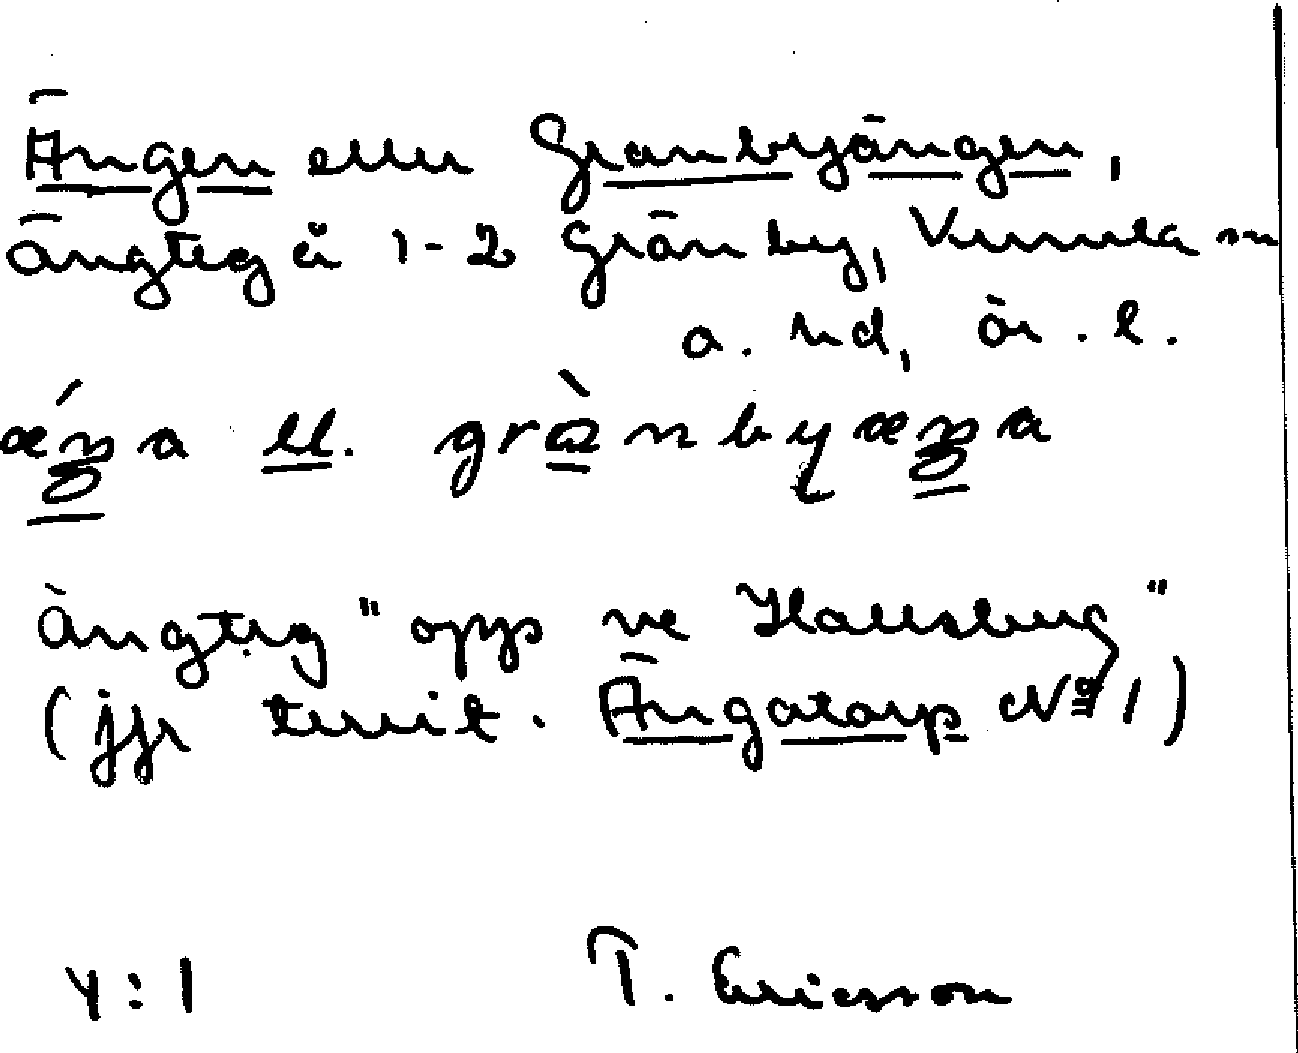 Ängen eller Granbyängen,
ängteg å 1-2 Gränby, Kumla sn
a. hd, ör. l.
ǽŋa ll. grànbyæŋa
Ängteg "opp ve Hallsberg"
(jfr territ. Ängatorp No 1)
Y:1 T. Ericsson